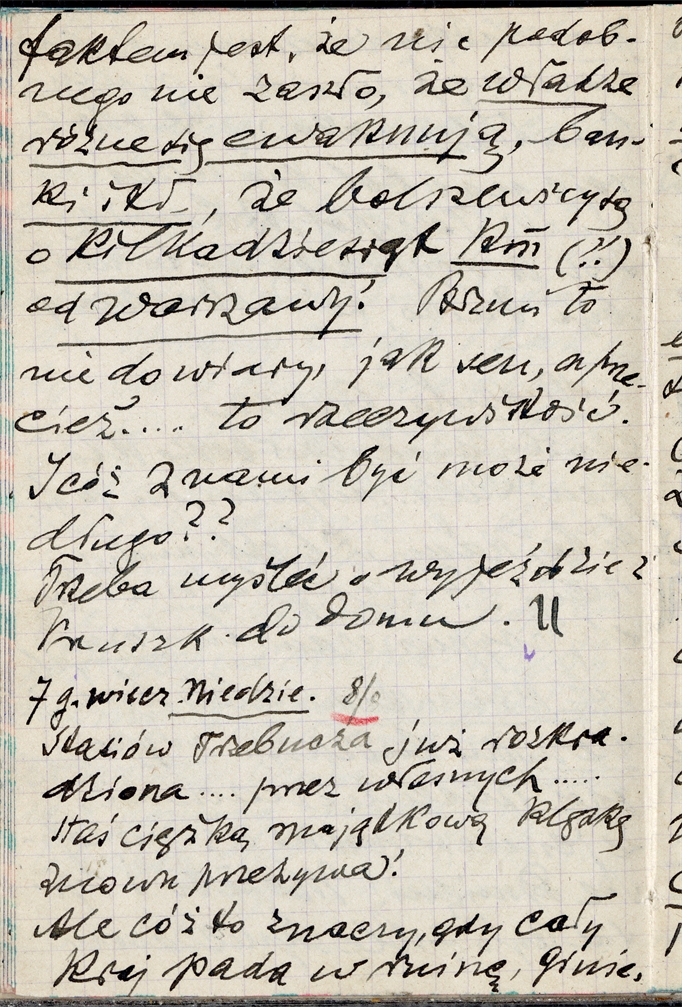 faktem jest, że nic podob-
nego nie zaszło, że władze
różne się ewakuują, ban-
ki itd., że bolszewicy są
o kilkadziesiąt km (?!)
od Warszawy! Brzmi to
nie do wiary, jak sen, a prze-
cież.... to rzeczywistość.
I cóż z nami być może nie-
długo??
Trzeba myśleć o wyjeździe z
Truszk. do domu.
7 g. wiecz. Niedzie. 8/
Stasiów Trzebucza już rozkra-
dziona.... przez własnych.....
Staś ciężką majątkową klęskę
znowu przeżywa!
Ale cóż to znaczy, gdy cały
kraj pada w ruinę, ginie,